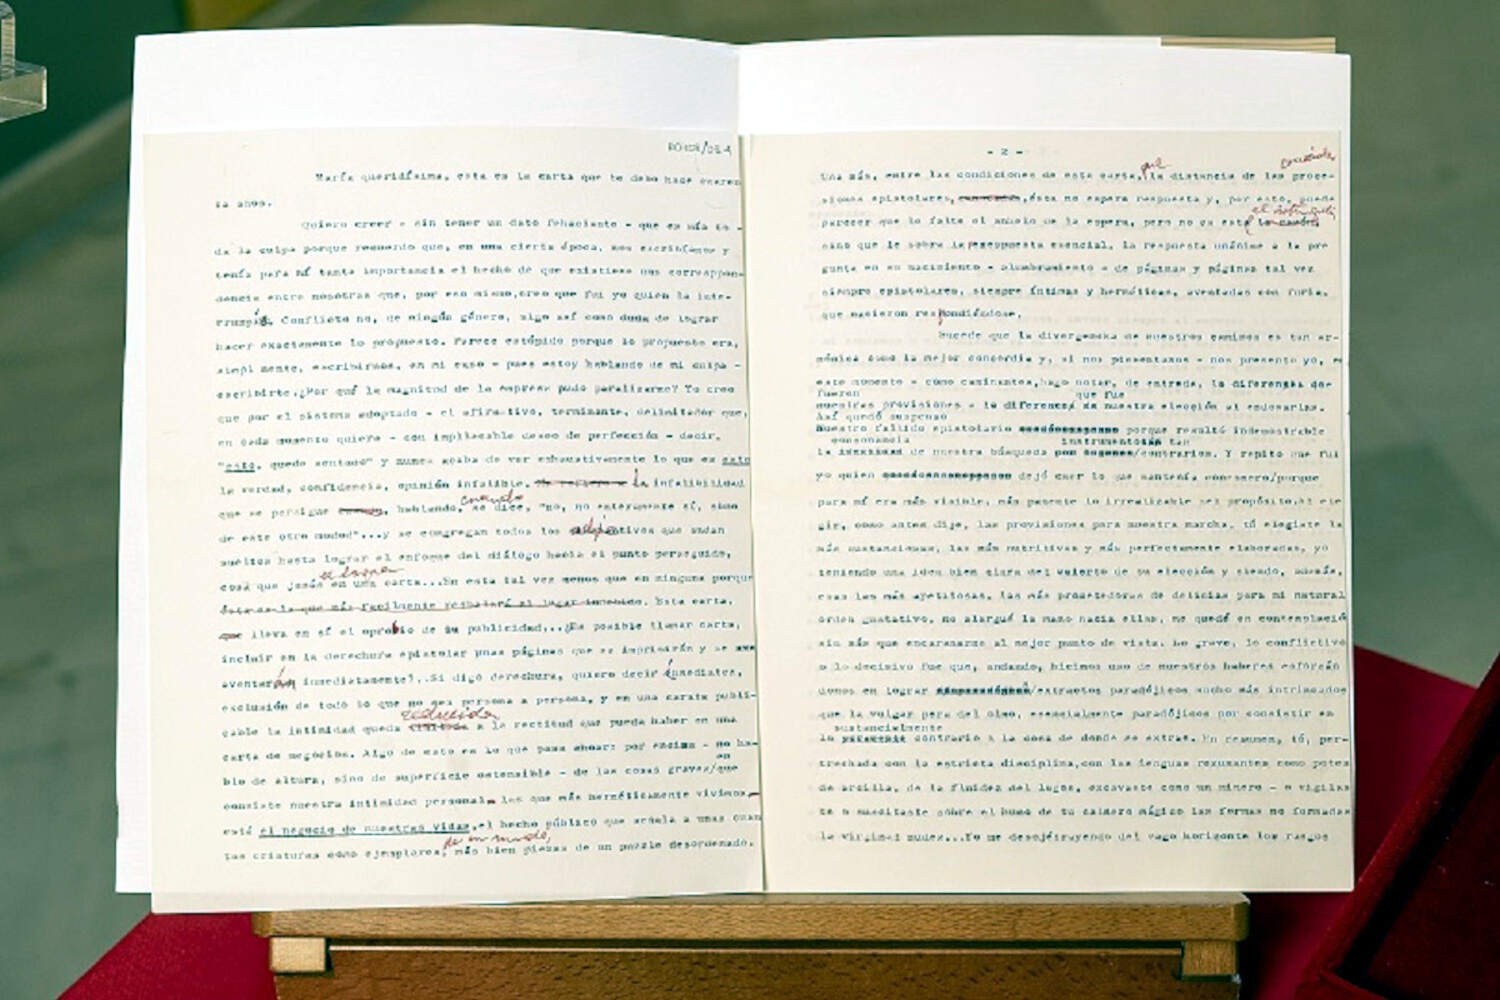 María queridísima, esta es la carta que te debo hace cuaren
ta años.
Quiero creer - sin tener un dato fehaciente - que es mía to -
da la culpa porque recuerdo que, en una cierta época, nos escribíamos y
tenía para mí tanta importancia el hecho de que existiese una correspon-
dencia entre nosotras que, por eso mismo, creo que fui yo quien la inte-
rrumpió. Conflicto no, de ningún género, algo así como duda de lograr
hacer exactamente lo propuesto. Parece estúpido porque lo propuesto era,
simplemente, escribirnos, en mi caso - pues estoy hablando de mi culpa -
escribirte. ¿Por qué la magnitud de la empresa pudo paralizarme? Yo creo
que por el sistema adoptado - el afirmativo, terminante, delimitador que,
en cada momento quiere - con implacable deseo de perfección - decir,
"esto, quede sentado" y nunca acaba de ver exhaustivamente lo que es esto
la verdad, confidencia, opinión infalible. la infalibilidad
cuando
que se persigue hablando, se dice, "no, no enteramente sí, sino
de este otro modo"...y se congregan todos los adjetivos que andan
sueltos hasta lograr el enfoque del diálogo hasta el punto perseguido,
cosa que jamás en una carta...En esta tal vez menos que en ninguna porque
ésta es la que más fácilmente resbalará al lugar Esta carta,
que lleva en sí el oprobio de su publicidad...¿Es posible llamar carta,
incluir en la derechura epistolar unas páginas que se imprimirán y se
aventarán inmediatamente?..Si digo derechura, quiero decir
exclusión de todo lo que no sea persona a persona, y en una carta publi-
reducida
cable la intimidad queda a la rectitud que pueda haber en una
carta de negocios. Algo de esto es lo que pasa ahora: por encima - no ha-
en
blo de altura, sino de superficie ostensible - de las cosas graves/que
consiste nuestra intimidad personal, las que más herméticamente vivimos,
está el negocio de nuestras vidas, el hecho público que señala a unas cuan
de un mundo,
tas criaturas como ejemplares, más bien piezas de un puzzle desordenado.
- 2 -
que
Una más, entre las condiciones de esta carta, la distancia de las proce-
siones epistolares, ésta no espera respuesta y, por esto, puede
parecer que le falta el anhelo de la espera, pero no es esta
sino que le sobra la presupuesta esencial, la respuesta unánime a la pre
gunta en su nacimiento - alumbramiento - de páginas y páginas tal vez
siempre epistolares, siempre íntimas y herméticas, aventadas con furia,
que nacieron respondiéndose.
Sucede que la divergencia de nuestros caminos es tan ar-
mónica como la mejor concordia y, si nos presentamos - nos presento yo, en
este momento - como caminantes, hago notar, de entrada, la diferencia de
fueron que fue
nuestras provisiones - la diferencia de nuestra elección al envasarlas.
Así quedó suspenso
Nuestro fallido epistolario porque resultó indemostrable
consonancia instrumentos tan
la de nuestra búsqueda contrarios. Y repito que fui
yo quien dejó caer lo que mantenía porque
para mí era más visible, más patente lo irrealizable del propósito. Al ele
gir, como antes dije, las provisiones para nuestra marcha, tú elegiste la
más sustanciosas, las más nutritivas y más perfectamente elaboradas, yo
teniendo una idea bien clara del acierto de tu elección y siendo, además,
esas las más apetitosas, las más prometedoras de delicias para mi natural
orden gustativo, no alargué la mano hacia ellas, me quedé en contemplació
sin más que encaramarme al mejor punto de vista. Lo grave, lo conflictivo
o lo decisivo fue que, andando, hicimos uso de nuestros haberes esforzán
donos en lograr extractos paradójicos mucho más intrincados
que la vulgar pera del olmo, esencialmente paradójicos por consistir en
sustancialmente
lo contrario a la cosa de donde se extrae. En resumen, tú, per-
trechada con la estricta disciplina, con las lenguas rezumantes como potes
de arcilla, de la fluidez del logos, excavaste como un minero - o vigilas
te o meditaste sobre el humo de tu caldero mágico las formas no formadas
la virginal nudez...Yo me desojé trayendo del vago horizonte los rasgos